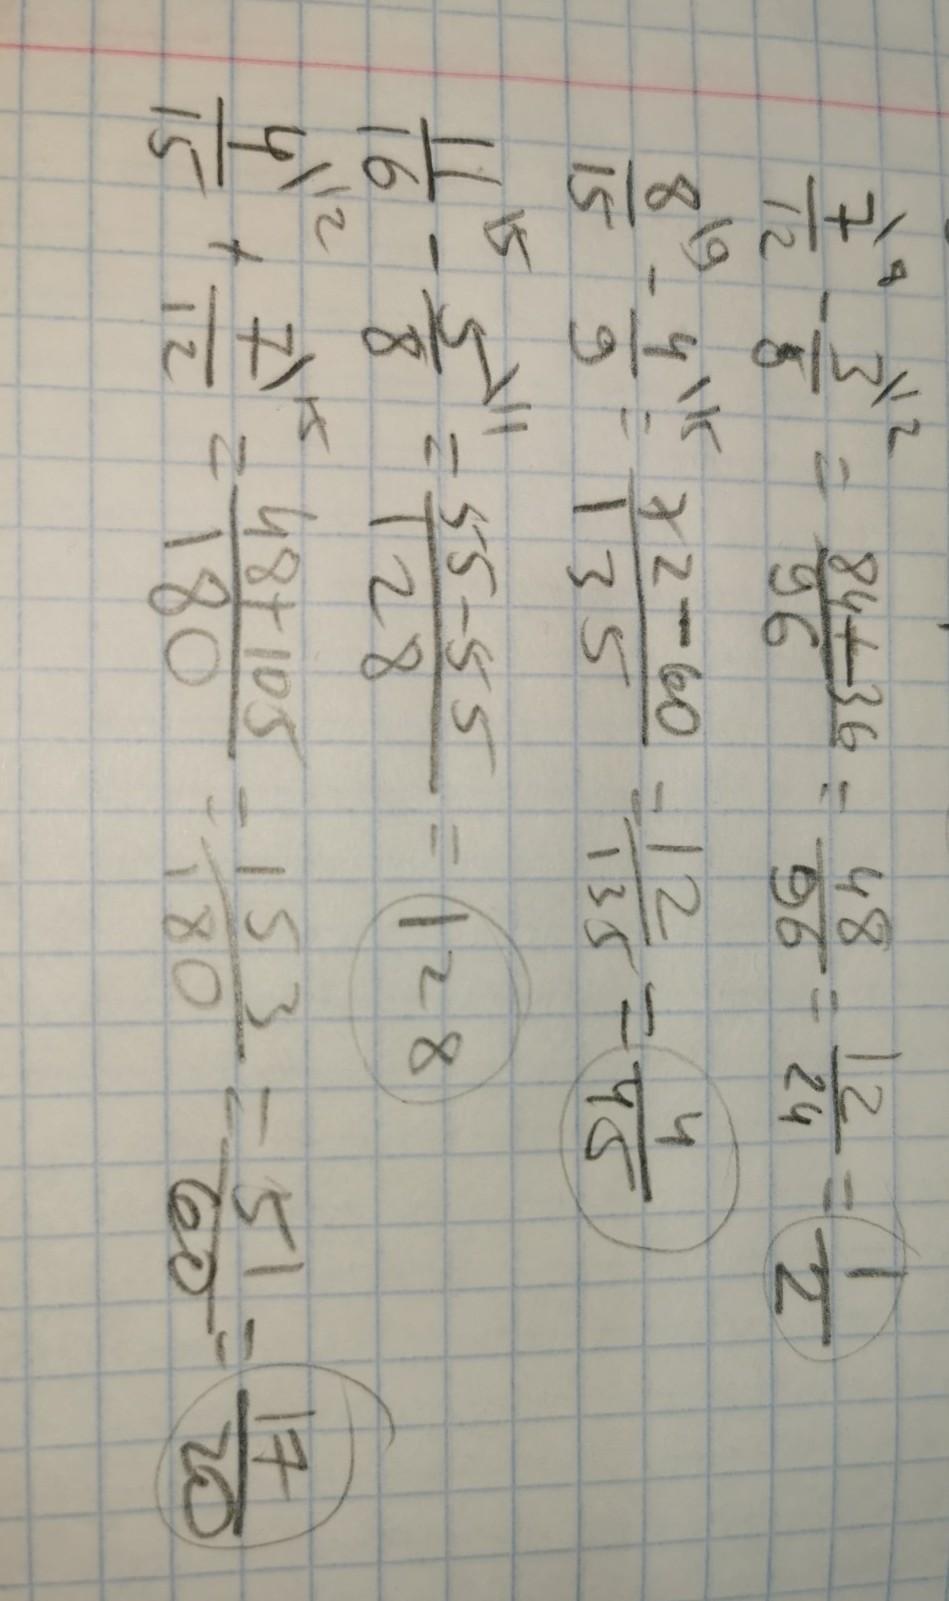 7/12 \8 - 3/8 \12 = 84+36/96 = 48/96 = 12/24 = 1/2
8/15 \9 - 4/9 \15 = 72-60/135 = 12/135 = 4/45
11/16 \5 - 5/8 \11 = 55-55/128 = 128
4/15 \12 + 7/12 \15 = 48+105/180 = 153/180 = 51/60 = 17/20